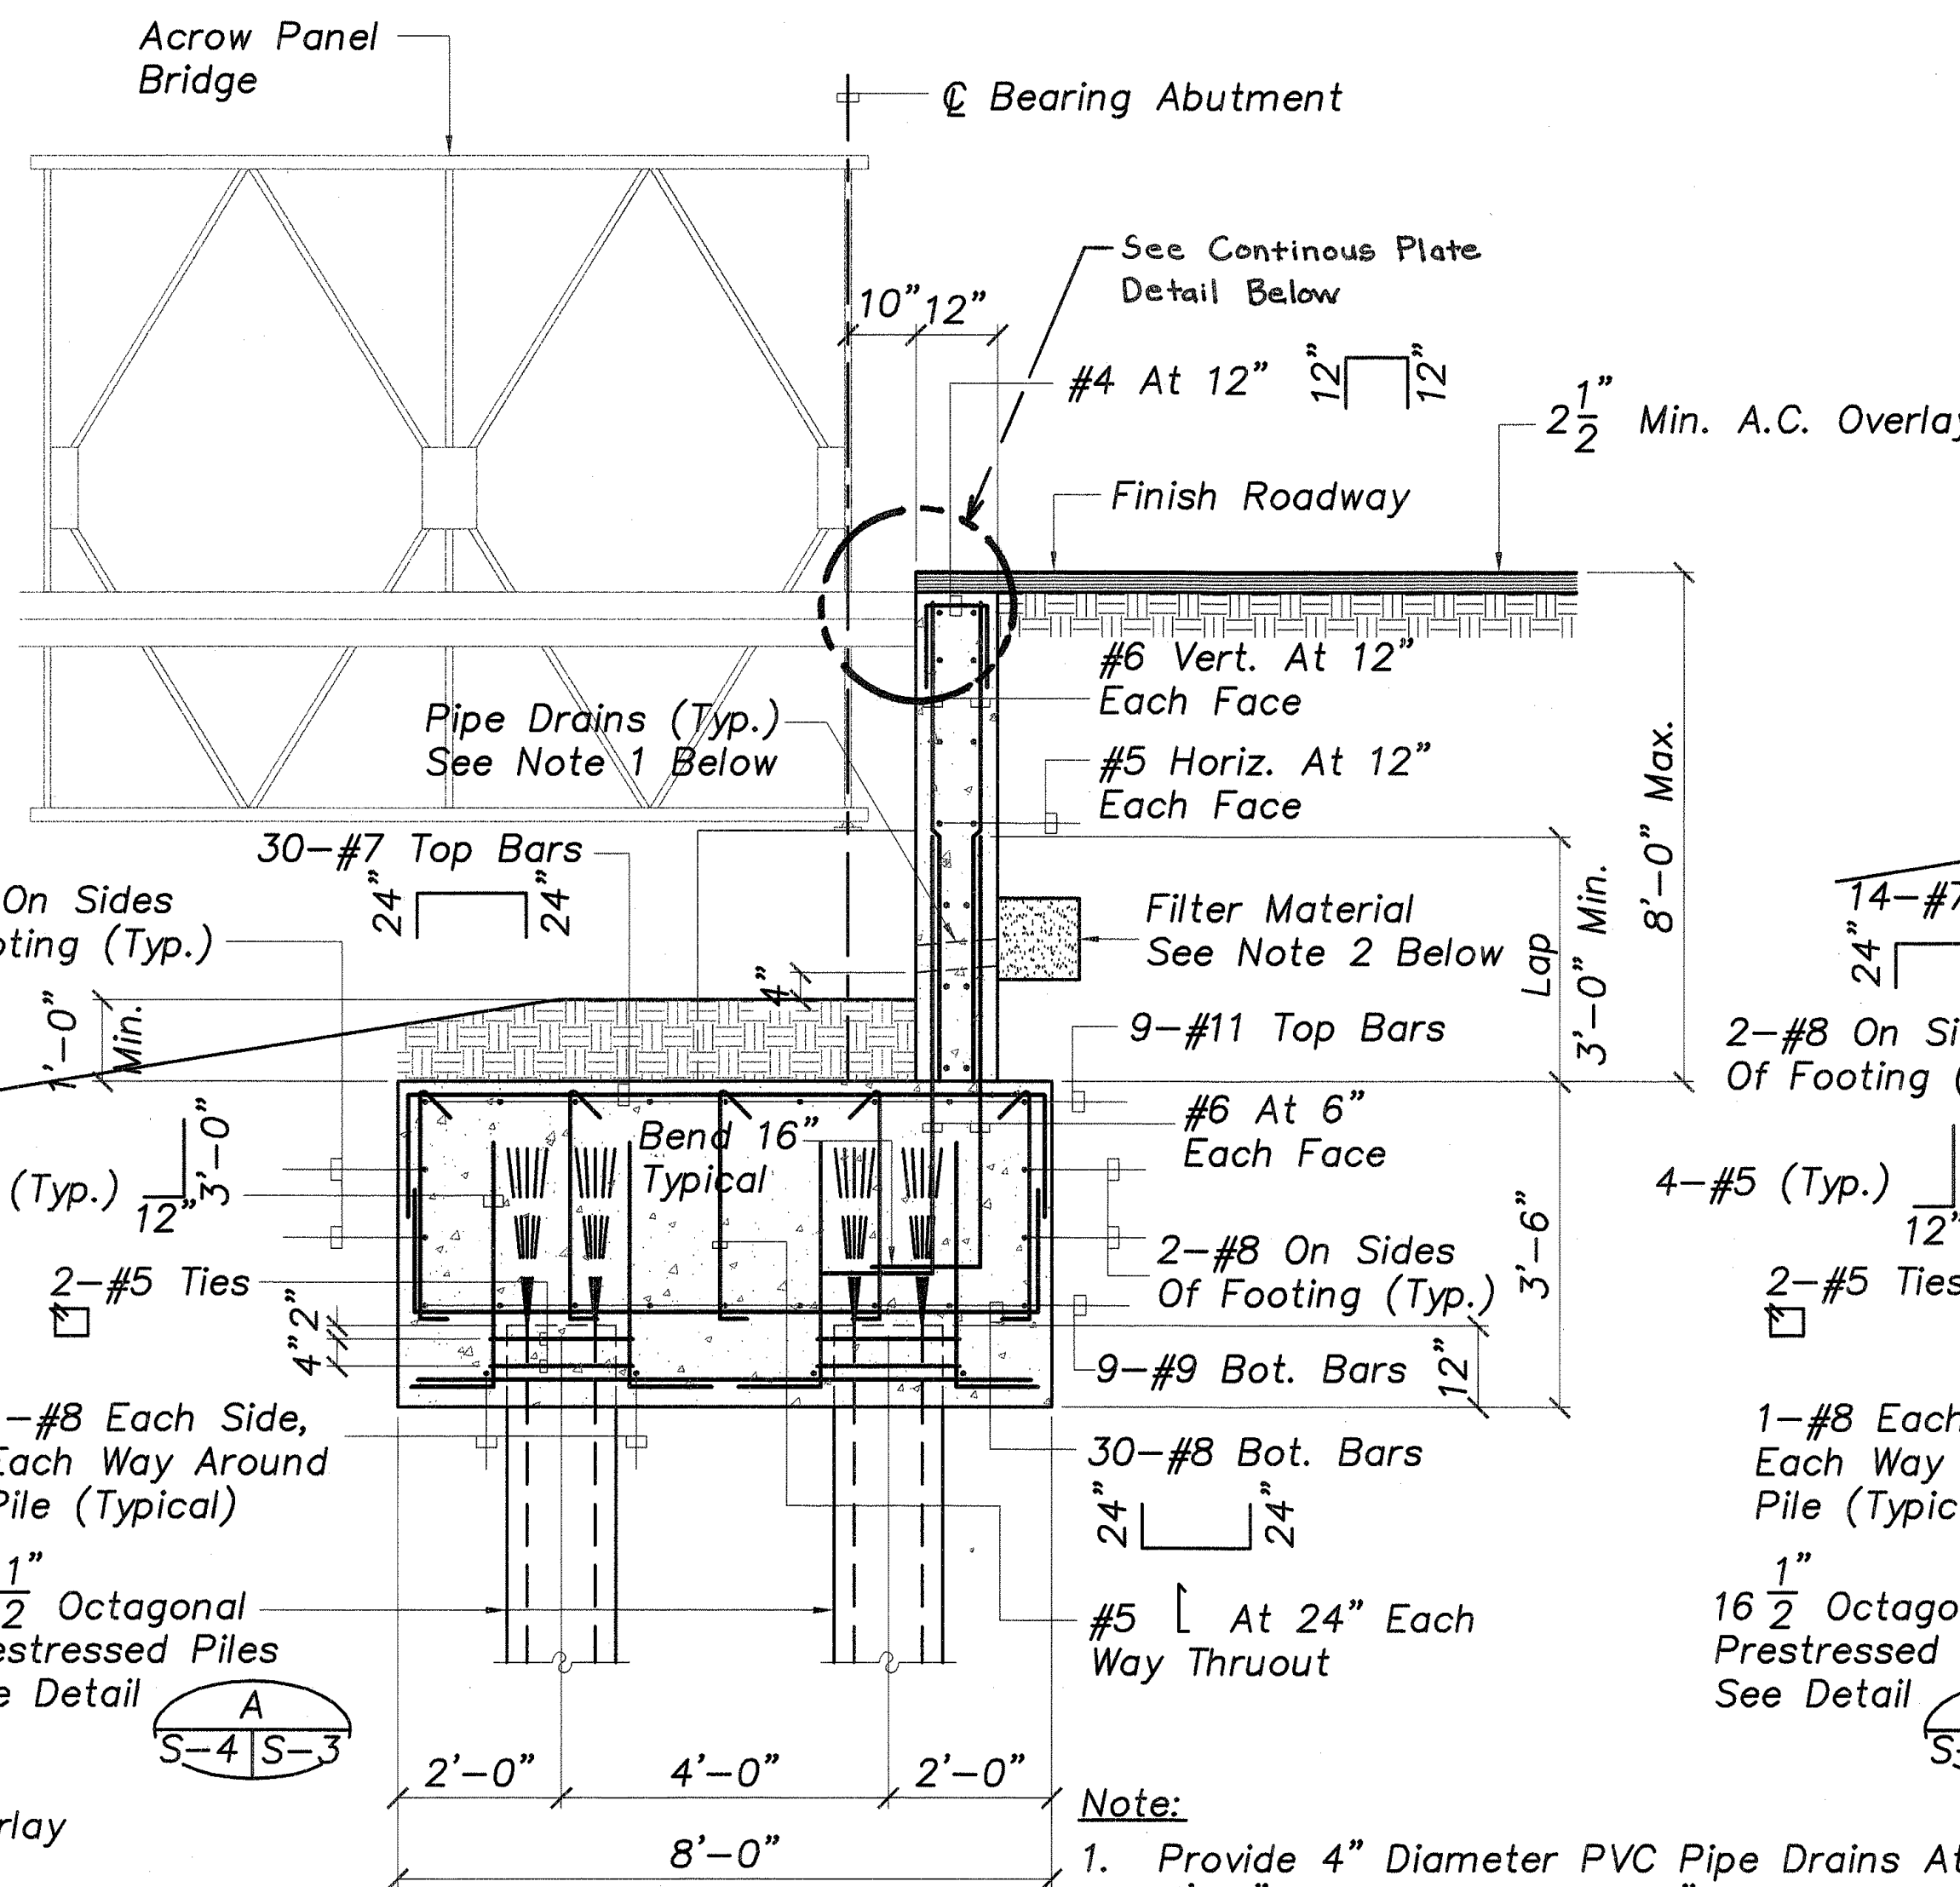 Acrow Panel
Bridge
℄ Bearing Abutment
See Continous Plate
Detail Below
10" 12"
#4 At 12" 12" 12"
2 1/2" Min. A.C. Overlay
Finish Roadway
#6 Vert. At 12"
Each Face
Pipe Drains (Typ.)
See Note 1 Below
#5 Horiz. At 12"
Each Face
8'-0" Max.
30-#7 Top Bars
24" 24"
On Sides
(Typ.)
Filter Material
See Note 2 Below
Lap
3'-0" Min.
14-#7
24"
4"
1'-0"
Min.
9-#11 Top Bars
2-#8 On
Of Footing
#6 At 6"
Each Face
Bend 16"
Typical
(Typ.)
12" 3'-0"
4-#5 (Typ.)
12"
2-#5 Ties
2-#8 On Sides
Of Footing (Typ.)
3'-6"
2-#5 Ties
4" 2"
9-#9 Bot. Bars
12"
-#8 Each Side,
Each Way Around
Pile (Typical)
1-#8 Each
Each Way
Pile
30-#8 Bot. Bars
24" 24"
1/2" Octagonal
Piles
Detail
A
S-4 S-3
#5 At 24" Each
Way Thruout
16 1/2"
Prestressed
See Detail
2'-0" 4'-0" 2'-0"
8'-0"
Note:
1. Provide 4" Diameter PVC Pipe Drains At